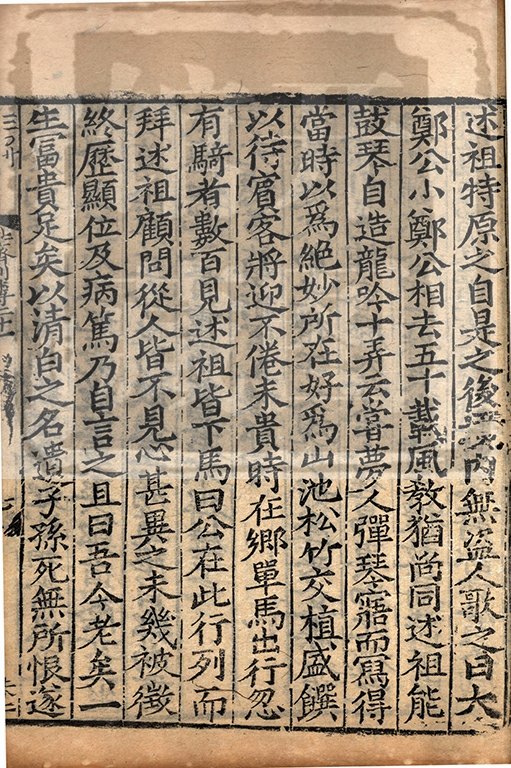 述祖特原之自是之後境内無盜人歌之曰大
鄭公小鄭公相去五十載風敎猶尚同述祖能
鼓琴自造龍吟十弄云嘗夢人彈琴寤而寫得
當時以爲絶妙所在好爲山池松竹交植盛饌
以待賓客將迎不倦未貴時在鄉單馬出行忽
有騎者數百見述祖皆下馬曰公在此行列而
拜述祖顧問從人皆不見心甚異之未幾被徵
終歷顯位及病篤乃自言之且曰吾今老矣一
生富貴足矣以清白之名遺子孫死無所恨遂